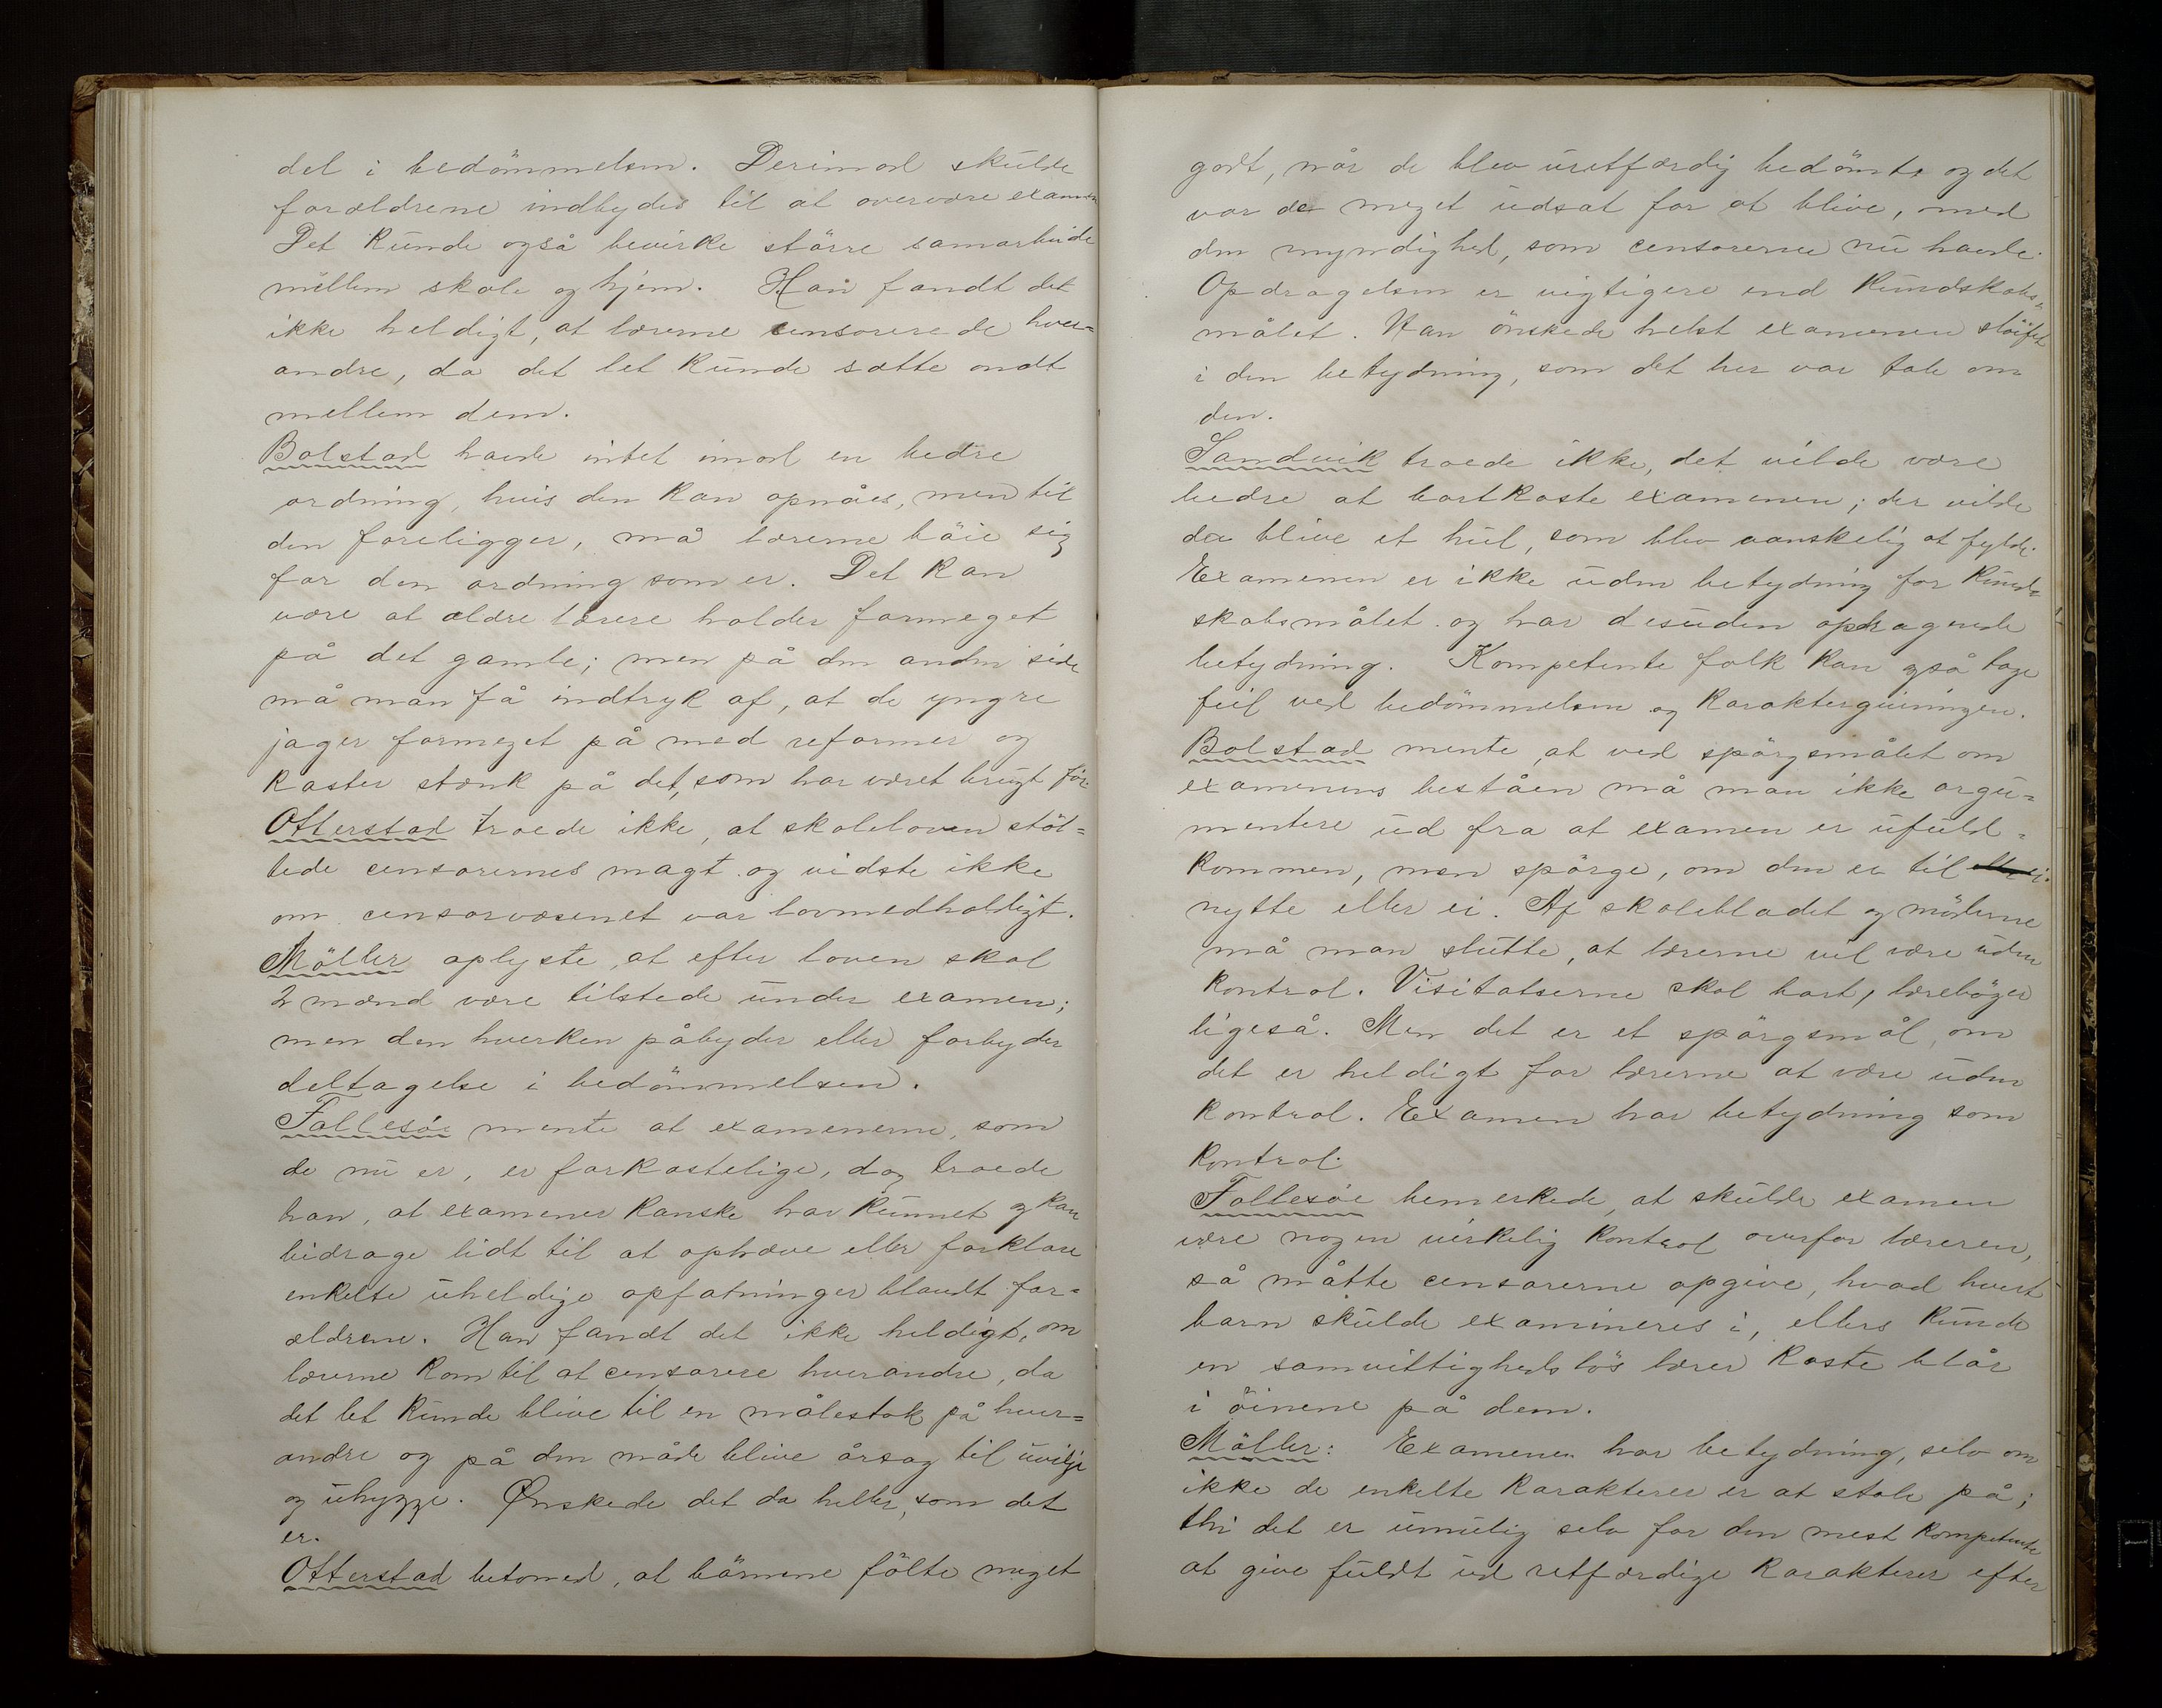 del i bedömmelsen. Derimod skulde
forældrene indbydes til at overvære examen
Det kunde også bevirke större samarbeide
mellem skole og hjem. Han fandt det
ikke heldigt, at lærerne censorerede hver=
andre, da det let kunde sætte ondt
mellem dem.
Bolstad havde intet imod en bedre
ordning, hvis den kan opnåes, men til
den foreligger, må lærerne böie sig
for den ordning som er. Det kan
være at ældre lærere holder formeget
på det gamle; men på den anden side
må man få indtryk af, at de yngre
jager formeget på med reformer og
kaster stænk på det, som har været brugt för.
Otterstad troede ikke, at skoleloven stöt=
tede censorernes magt og vidste ikke
om censorvæsenet var lovmedholdigt.
Möller oplyste, at efter loven skal
2 mænd være tilstede under examen;
men den hverken påbyder eller forbyder
deltagelse i bedömmelsen.
Follesöe mente at examenerne, som
de nu er, er forkastelige, dog troede
han, at examener kanske har kunnet og kan
bidrage lidt til at ophæve eller forklare
enkelte uheldige opfatninger blandt for=
ældrene. Han fandt det ikke heldigt, om
lærerne kom til at censorere hverandre, da
det let kunde blive til en målestok på hver=
andre og på den måde blive årsag til uvilje
og uhygge. Ønskede det da heller, som det
er.
Otterstad betoned, at börnene fölte meget
godt, når de blev uretfærdig bedömte og det
var de meget udsat for at blive, med
den myndighed, som censorerne nu havde.
Opdragelsen er vigtigere end kundskabs=
målet. Han önskede helst examenen slöifet
i den betydning, som det her var tale om
den.
Sandvik troede ikke, det vilde være
bedre at bortkaste examenen; der vilde
da blive et hul, som blev vanskelig at fylde.
Examenen er ikke uden betydning for kund=
skabsmålet og har desuden opdragende
betydning. Kompetente folk kan også tage
feil ved bedömmelsen og karaktergivningen.
Bolstad mente, at ved spörgsmålet om
examenens beståen må man ikke argu=
mentere ud fra at examen er ufuld=
kommen, men spörge, om den er til eller ei.
nytte eller ei. Af skolebladet og möderne
må man slutte, at lærerne vil være uden
kontrol. Visitatserne skal bort, lærebøger
ligeså. Men det er et spörgsmål, om
det er heldigt for lærerne at være uden
kontrol. Examen har betydning som
kontrol.
Follesöe bemerkede, at skulde examen
være nogen virkelig kontrol overfor læreren,
så måtte censorerne opgive, hvad hvert
barn skulde examineres i, ellers kunde
en samvittighedslös lærer kaste blår
i öinene på dem.
Möller: Examenen har betydning, selv om
ikke de enkelte karakterer er at stole på;
thi det er umulig selv for den mest kompetente
at give fuldt ud retfærdige karakterer efter